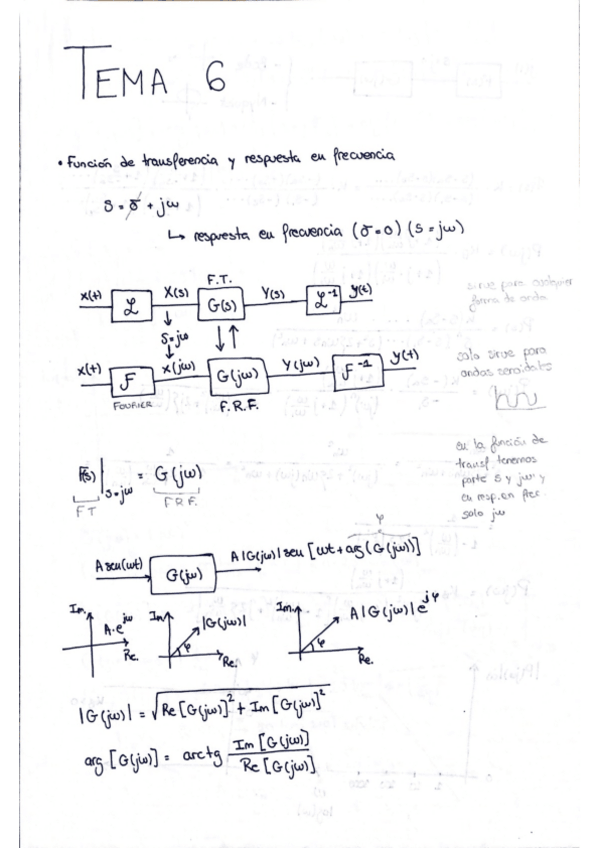 TEMA 6
• Función de transferencia y respuesta en frecuencia
S = σ + jω
↳ respuesta en frecuencia (σ=0) (S=jω)
F.T.
x(t) ℒ X(s) G(s) Y(s) ℒ⁻¹ y(t)
sirve para cualquier
forma de onda
S=jω
x(t) F x(jω) G(jω) Y(jω) F⁻¹ y(t)
FOURIER F.R.F.
solo sirve para
ondas senoidales
F(s)|s=jω = G(jω)
FT F.R.F.
en la función de
transf. tenemos
parte s y jω, y
en resp. en frec.
solo jω
φ
A sen(ωt) G(jω) A|G(jω)| sen [ωt + arg(G(jω))]
Im. A·e^jω Re.
Im |G(jω)| φ Re.
Im. A|G(jω)|e^jφ φ Re.
|G(jω)| = √Re[G(jω)]² + Im[G(jω)]²
arg [G(jω)] = arctg Im[G(jω)] / Re[G(jω)]